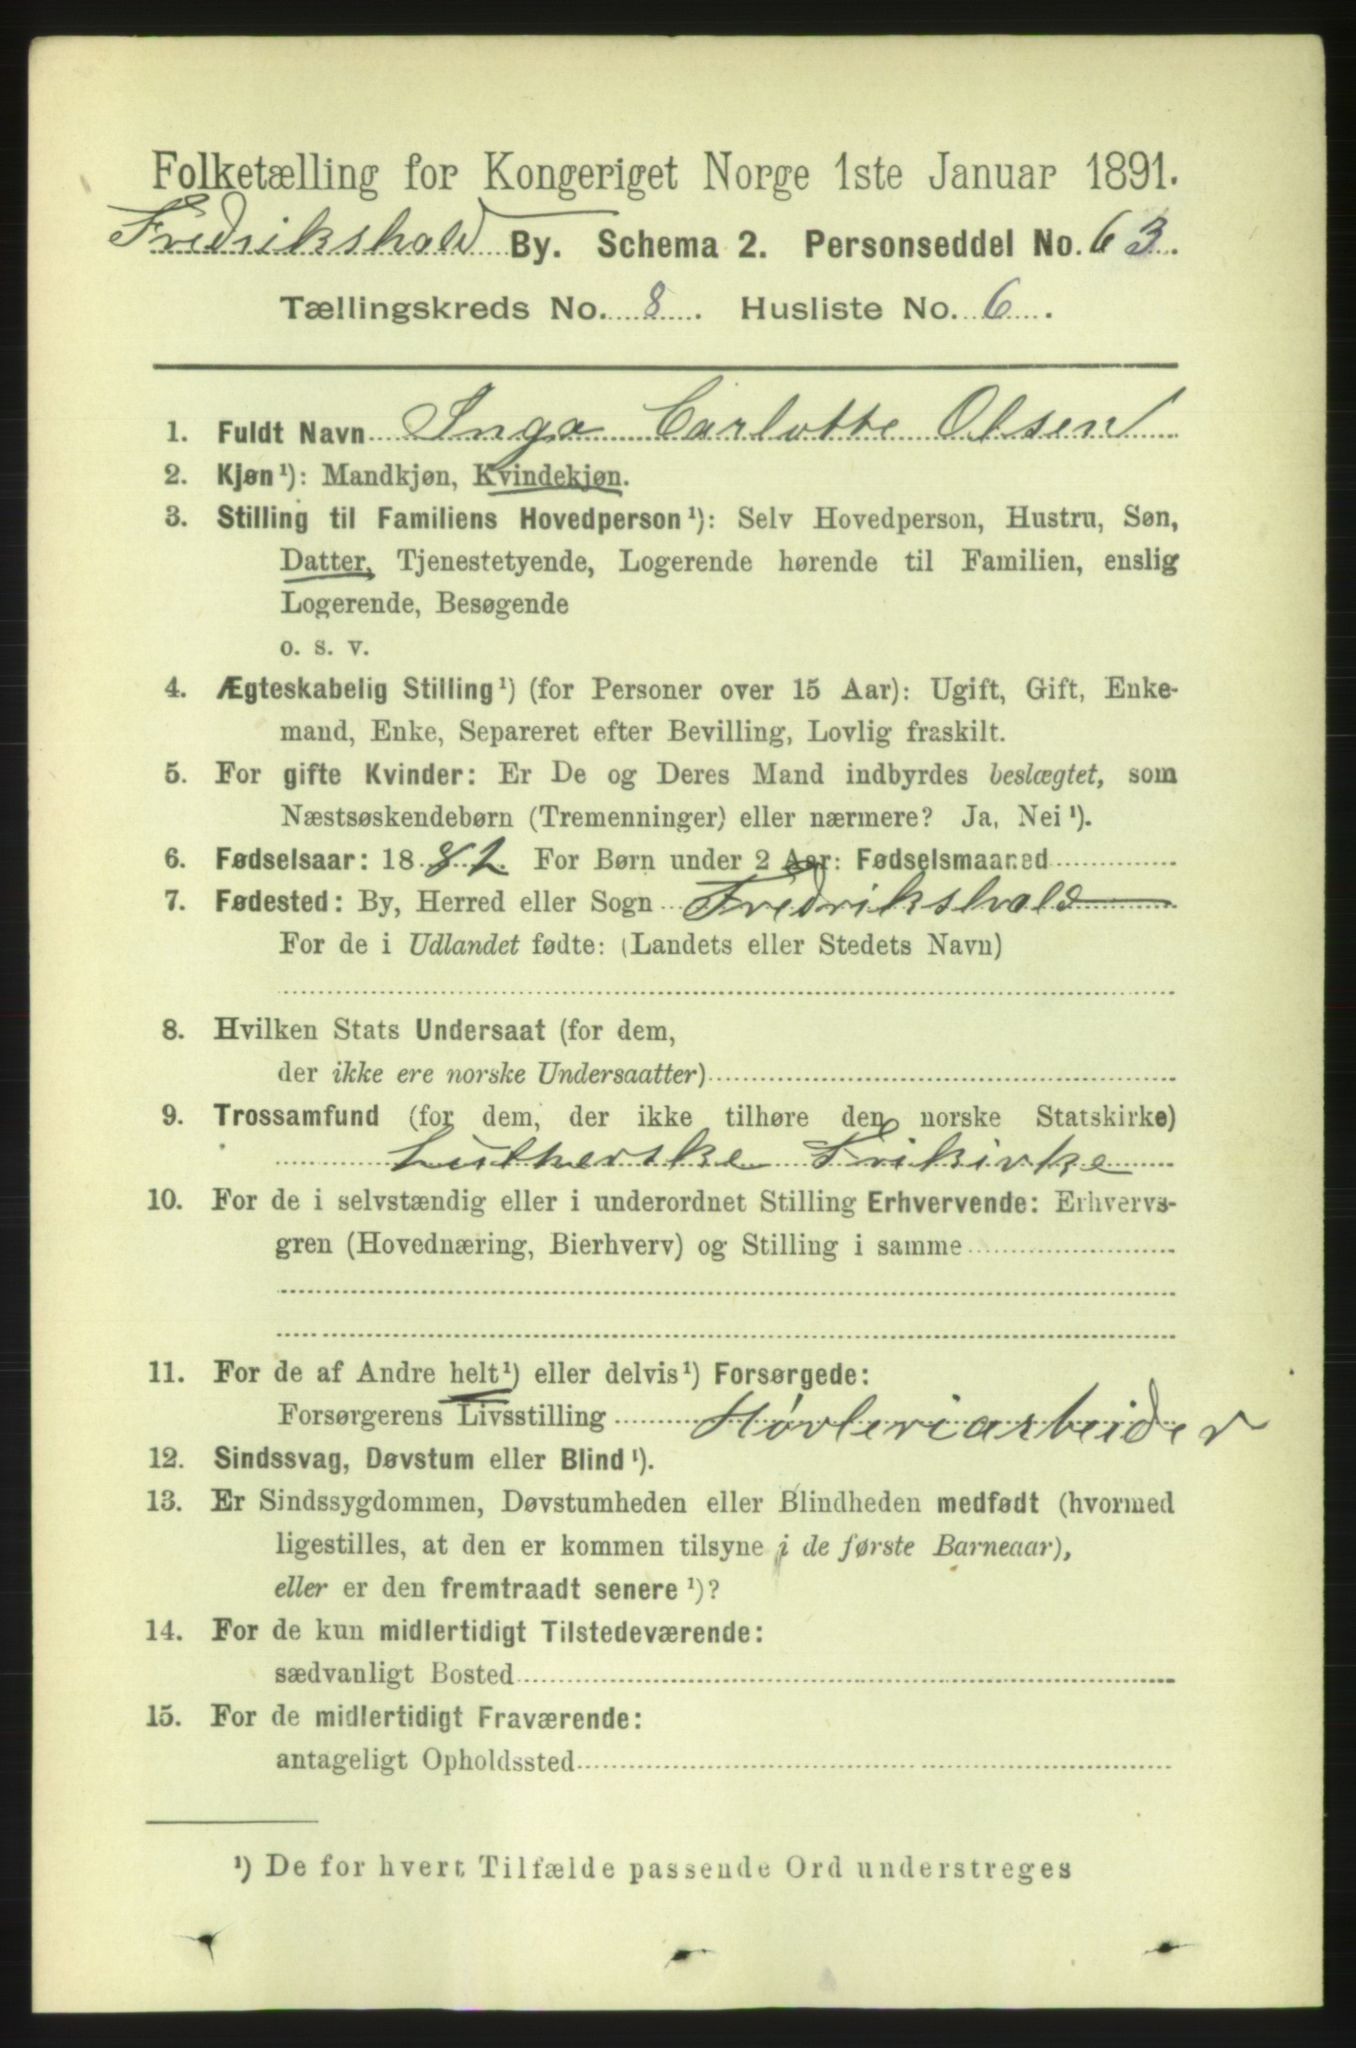 Folketælling for Kongeriget Norge 1ste Januar 1891.
Fredrikshald By. Schema 2. Personseddel No. 63.
Tællingskreds No. 8. Husliste No. 6.
1. Fuldt Navn Inga Carlotte Olsen
2. Kjøn¹): Mandkjøn, Kvindekjøn.
3. Stilling til Familiens Hovedperson¹): Selv Hovedperson, Hustru, Søn,
Datter, Tjenestetyende, Logerende hørende til Familien, enslig
Logerende, Besøgende
o. s. v.
4. Ægteskabelig Stilling¹) (for Personer over 15 Aar): Ugift, Gift, Enke-
mand, Enke, Separeret efter Bevilling, Lovlig fraskilt.
5. For gifte Kvinder: Er De og Deres Mand indbyrdes beslægtet, som
Næstsøskendebørn (Tremenninger) eller nærmere? Ja, Nei¹).
6. Fødselsaar: 1882. For Børn under 2 Aar: Fødselsmaaned
7. Fødested: By, Herred eller Sogn Fredrikshald
For de i Udlandet fødte: (Landets eller Stedets Navn)
8. Hvilken Stats Undersaat (for dem,
der ikke ere norske Undersaatter)
9. Trossamfund (for dem, der ikke tilhøre den norske Statskirke)
Lutherske Frikirke
10. For de i selvstændig eller i underordnet Stilling Erhvervende: Erhvervs-
gren (Hovednæring, Bierhverv) og Stilling i samme
11. For de af Andre helt¹) eller delvis¹) Forsørgede:
Forsørgerens Livsstilling Høvleriarbeider
12. Sindssvag, Døvstum eller Blind¹).
13. Er Sindssygdommen, Døvstumheden eller Blindheden medfødt (hvormed
ligestilles, at den er kommen tilsyne i de første Barneaar),
eller er den fremtraadt senere¹)?
14. For de kun midlertidigt Tilstedeværende:
sædvanligt Bosted
15. For de midlertidigt Fraværende:
antageligt Opholdssted
¹) De for hvert Tilfælde passende Ord understreges